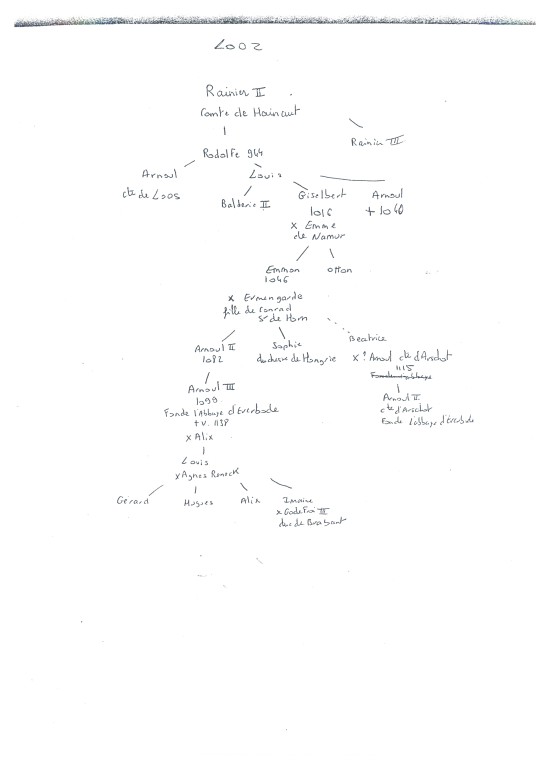 Looz
Rainier II
Comte de Hainaut
Rainier III
Rodolfe 944
Arnoul
cte de Loos
Louis
Balderic II
Giselbert
1016
x Emme
de Namur
Arnoul
+ 1040
Emmon
1046
otton
x Ermengarde
fille de Conrad
Sr de Horn
Arnoul II
1082
Sophie
duchesse de Hongrie
Beatrice
x ? Arnoul cte d'Arschot
1115
Arnoul III
1099
Fonde l'Abbaye d'Everbode
+ v. 1138
x Alix
Arnoul II
cte d'Arschot
Fonde l'abbaye d'Everbode
Louis
x Agnes Reneck
Gérard
Hugues
Alix
Imaine
x Godefroi III
duc de Brabant